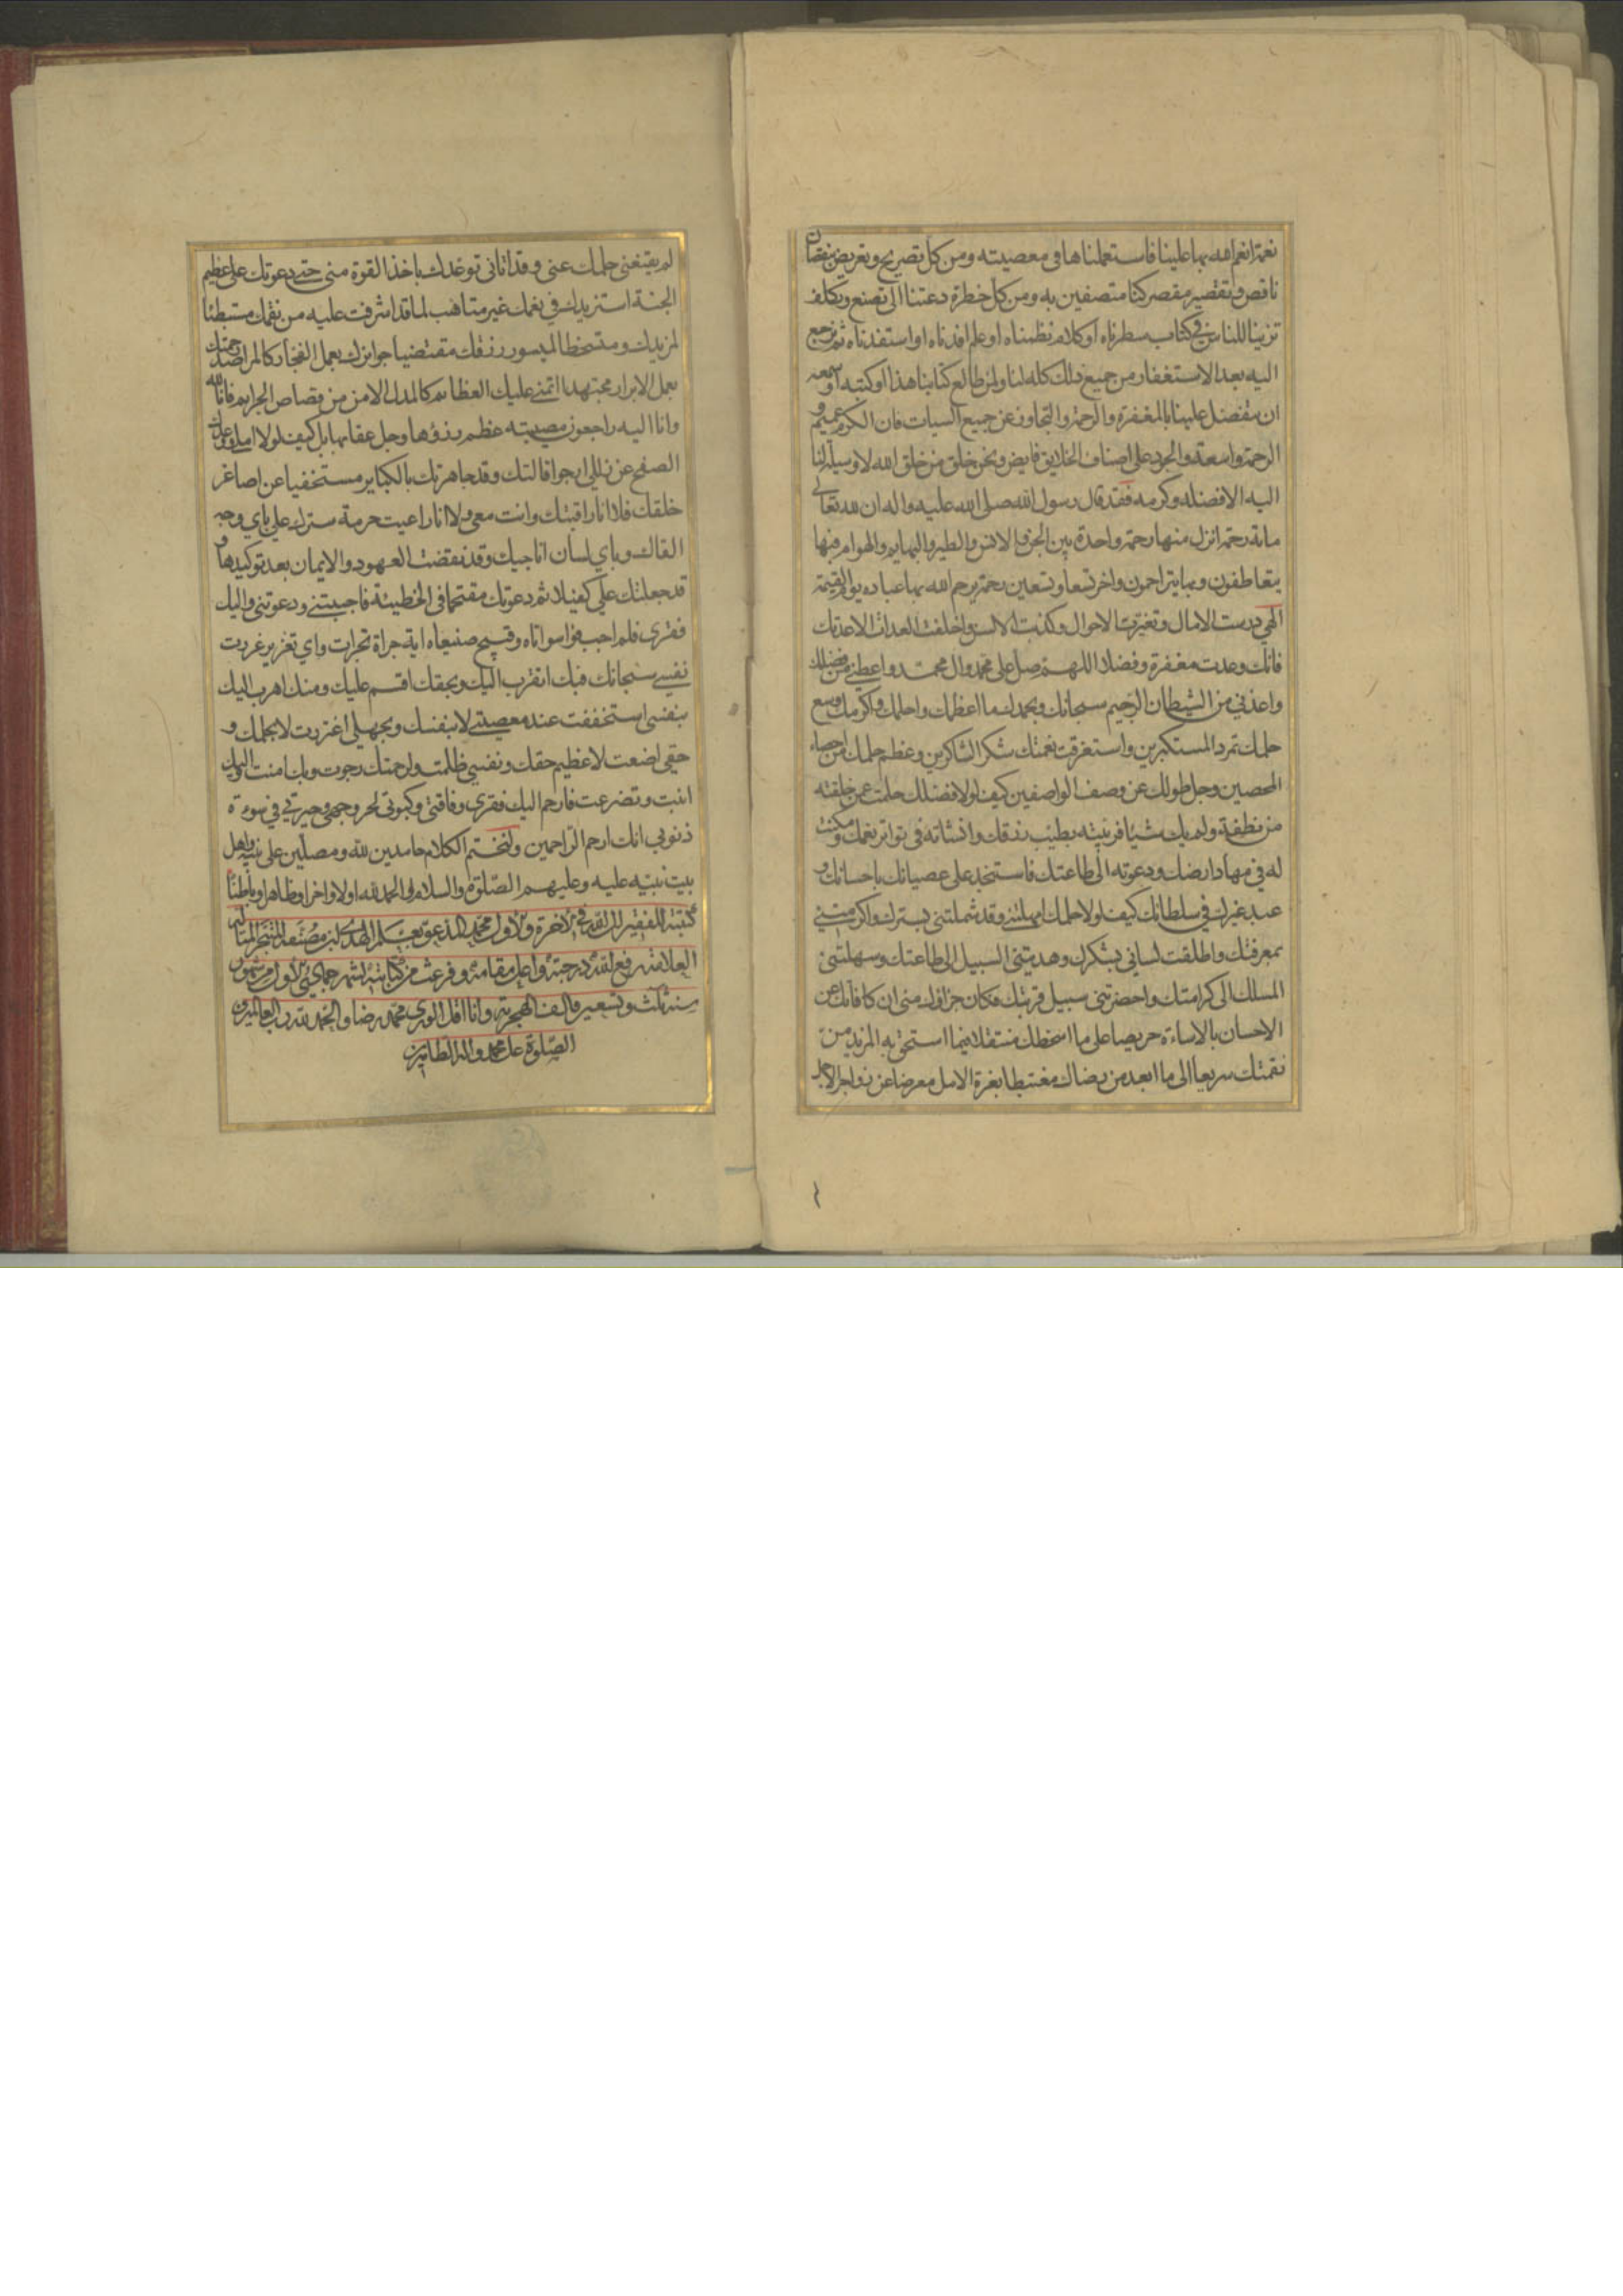 نعمة انعم الله بها علينا فاستعملناها في معصيته ومن كل تصريح وتعريض بنقصان
ناقص وتقصير مقصر كنا متصفين به ومن كل خطرة دعتنا الى تصنع وتكلف
تزينا للناس في كتاب سطرناه او كلام نظمناه او علم افدناه او استفدناه ثم نرجع
اليه بعد الاستغفار من جميع ذلك كله لنا ولمن طالع كتابنا هذا او كتبه او سمعه
ان يتفضل علينا بالمغفرة والرحمة والتجاوز عن جميع السيات فان الكرم عميم و
الرحمة واسعة والجود على اصناف الخلايق فايض ونحن خلق من خلق الله لا وسيلة لنا
اليه الا فضله وكرمه فقد قال رسول الله صلى الله عليه واله ان لله تعالى
ماية رحمة انزل منها رحمة واحدة بين الجن والانس والطير والبهايم والهوام فبها
يتعاطفون وبها يتراحمون واخر تسعا وتسعين رحمة يرحم الله بها عباده يوم القيمة
الهي درست الامال وتغيرت الاحوال وكذبت الالسن واخلفت العدات الا عدتك
فانك وعدت مغفرة وفضلا اللهم صل على محمد وال محمد واعطني من فضلك
واعذني من الشيطان الرجيم سبحانك وبحمدك ما اعظمك واحلمك واكرمك وسع
حلمك تمرد المستكبرين واستغرقت نعمتك شكر الشاكرين وعظم حلمك من احصاء
المحصين وجل طولك عن وصف الواصفين كيف لولا فضلك حلمت عمن خلقته
من نطفة ولم يك شيئا فربيته بطيب رزقك وانشاته في تواتر نعمك ومكنت
له في مهاد ارضك ودعوته الى طاعتك فاستنجد على عصيانك باحسانك و
عبد غيرك في سلطانك كيف لولا حلمك امهلتني وقد شملتني بسترك واكرمتني
بمعرفتك واطلقت لساني بشكرك وهديتني السبيل الى طاعتك وسهلتني
المسلك الى كرامتك واحضرتني سبيل قربتك فكان جزاؤك مني ان كافاتك عن
الاحسان بالاساءة حريصا على ما اسخطك منتقلا فيما استحق به المزيد من
نقمتك سريعا الى ما ابعد من رضاك مغتبطا بغرة الامل معرضا عن زواجر الاجل
لم يقنعني حلمك عني وقد اتاني توعدك باخذ القوة مني حتى دعوتك على عظيم
الجنة استزيدك في نعمك غير متاهب لما قد اشرفت عليه من نقمك مستبطئا
لمزيدك ومتسخطا لميسور رزقك مقتضيا جوايزك بعمل الفجار كالمراصد رحمتك
بعمل الابرار مجتهدا اتمنى عليك العظايم كالمدل الامن من قصاص الجرايم فانا لله
وانا اليه راجعون مصيبته عظم رزؤها وجل عقابها بل كيف لولا املي ووعدك
الصفح عن زللي ارجو اقالتك وقد جاهرتك بالكباير مستخفيا عن اصاغر
خلقك فلا انا راقبتك وانت معي ولا انا راعيت حرمة سترك علي باي وجه
القاك وباي لسان اناجيك وقد نقضت العهود والايمان بعد توكيدها و
قد جعلتك علي كفيلا ثم دعوتك مقتحما في الخطيئة فاجبتني ودعوتني واليك
فقري فلم اجب فواسواتاه وقبيح صنيعاه اية جراة تجرات واي تغرير غررت
نفسي سبحانك فبك اتقرب اليك وبحقك اقسم عليك ومنك اهرب اليك
بنفسي استخففت عند معصيتي لا بنفسك وبجهلي اغتررت لا بحلمك و
حقي اضعت لا عظيم حقك ونفسي ظلمت ولرحمتك رجوت وبك امنت واليك
انبت وتضرعت فارحم اليك فقري وفاقتي وكبوتي لحر وجهي وحيرتي في سوءة
ذنوبي انك ارحم الراحمين ولنختم الكلام حامدين لله ومصلين على نبيه واهل
بيت نبيه عليه وعليهم الصلوة والسلام والحمد لله اولا واخرا وظاهرا وباطنا
كتبه الفقير الى الله في الاخرة والاولى محمد المدعو بعلم الهدى ابن مصنفه المتبحر
العلامة رفع الله درجته واعلى مقامه وفرغت من كتابته لشهر جمادي الاول من شهور
سنة ثلث وتسعين والف الهجرية وانا اقل الورى محمد رضا والحمد لله رب العالمين و
الصلوة على محمد واله الطاهرين